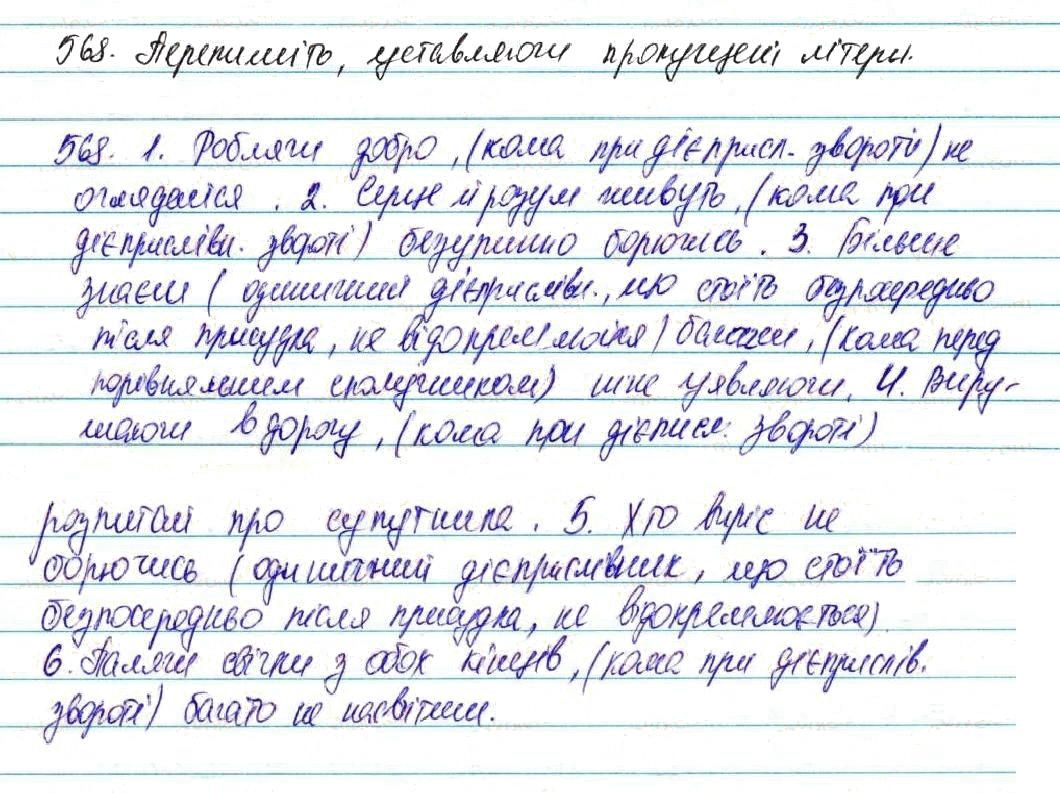 568. Перепишіть, уставляючи пропущені літери.
568. 1. Роблячи добро, (кома при дієприсл. звороті) не
оглядайся. 2. Серце й розум живуть, (кома при
дієприслівн. звороті) безупинно борючись. 3. Більше
знаєш (одиничний дієприслівн., що стоїть безпосередньо
після присудка, не відокремлюється) бачачи, (кома перед
порівняльним сполучником) ніж уявляючи. 4. Виру-
шаючи в дорогу, (кома при дієприсл. звороті)
розпитай про супутника. 5. Хто виріс не
борючись (одиничний дієприслівник, що стоїть
безпосередньо після присудка, не відокремлюється)
6. Палячи свічки з обох кінців, (кома при дієприслів.
звороті) багато не насвітиш.